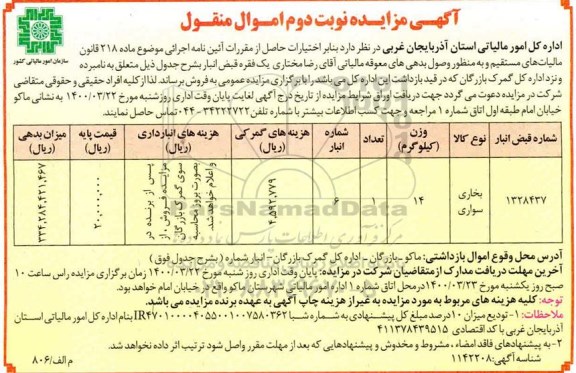 آگهی مزایده نوبت دوم اموال منقول
سازمان امور مالیاتی کشور
اداره کل امور مالیاتی استان آذربایجان غربی در نظر دارد بنابر اختیارات حاصل از مقررات آئین نامه اجرائی موضوع ماده ۲۱۸ قانون
مالیات‌های مستقیم و به منظور وصول بدهی های معوقه مالیاتی آقای رضا مختاری یک فقره قبض انبار بشرح جدول ذیل متعلق به نامبرده
و نزد اداره کل گمرک بازرگان که در قید بازداشت این اداره کل می باشد را با برگزاری مزایده عمومی به فروش برساند. لذا از کلیه افراد حقیقی و حقوقی متقاضی
شرکت در مزایده دعوت می گردد جهت دریافت اوراق شرایط مزایده از تاریخ درج آگهی لغایت پایان وقت اداری روز شنبه مورخ ۱۴۰۰/۰۳/۲۲ به نشانی ماکو
خیابان امام طبقه اول اتاق شماره ۱ مراجعه و جهت کسب اطلاعات بیشتر با شماره تلفن ۳۴۲۲۲۷۲۲-۰۴۴ تماس حاصل نمایند.
شماره قبض انبار	نوع کالا	وزن (کیلوگرم)	تعداد	شماره انبار	هزینه های گمرکی (ریال)	هزینه های انبارداری (ریال)	قیمت پایه (ریال)	میزان بدهی (ریال)
۱۳۲۸۴۳۷	بخاری سواری	۱۴	۱	۶	۴,۵۹۲,۷۷۹	پس از برنده در مزایده فروش، از سوی گمرک بازرگان بصورت بروز محاسبه و اعلام خواهد شد.	۲۰,۰۰۰,۰۰۰	۳۳۴,۲۸۳,۴۲۱,۴۶۷
ParsNamadData
آدرس محل وقوع اموال بازداشتی: ماکو - بازرگان - اداره کل گمرک بازرگان - انبار شماره ( بشرح جدول فوق )
آخرین مهلت دریافت مدارک از متقاضیان شرکت در مزایده: پایان وقت اداری روز شنبه مورخ ۱۴۰۰/۰۳/۲۲ زمان برگزاری مزایده راس ساعت ۱۰
صبح روز یکشنبه مورخ ۱۴۰۰/۰۳/۲۳ در محل اتاق شماره ۱ اداره امور مالیاتی شهرستان ماکو واقع در خیابان امام خواهد بود.
توجه: کلیه هزینه های مربوط به مورد مزایده به غیر از هزینه چاپ آگهی به عهده برنده مزایده می باشد.
ملاحظات: ۱- تودیع میزان ۱۰ درصد مبلغ کل پیشنهادی به شماره شبا IR۴۷۰۱۰۰۰۰۴۰۵۵۰۰۱۰۰۷۵۸۰۳۶۲ بنام اداره کل امور مالیاتی استان
آذربایجان غربی با کد اقتصادی ۴۱۱۳۷۸۴۳۹۵۱۵
۲- به پیشنهادهای فاقد امضاء ، مشروط و مخدوش و پیشنهادهایی که بعد از مهلت مقرر واصل شود ترتیب اثر داده نخواهد شد.
شناسه آگهی: ۱۱۴۲۲۰۸
م الف/۸۰۶